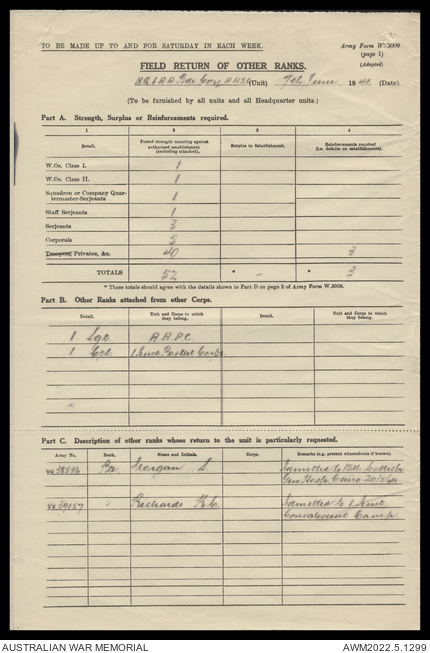 TO BE MADE UP TO AND FOR SATURDAY IN EACH WEEK.
Army Form W.3009
(page 1)
(Adapted)
FIELD RETURN OF OTHER RANKS.
(Unit) 7th June 1941 (Date).
(To be furnished by all units and all Headquarter units.)
Part A. Strength, Surplus or Reinforcements required.
1 2 3 4
Detail. Posted strength counting against authorized establishment (excluding attached). Surplus to Establishment. Reinforcements required (i.e. deficits on establishment).
W.Os. Class I. 1
W.Os. Class II. 1
Squadron or Company Quar-
termaster-Serjeants 1
Staff Serjeants 1
Serjeants 3
Corporals 5
Troopers, Privates, &c. 40 3
TOTALS 52 * - * 3
* These totals should agree with the details shown in Part D on page 2 of Army Form W.3009.
Part B. Other Ranks attached from other Corps.
Detail. Unit and Corps to which they belong. Detail. Unit and Corps to which they belong.
1 Sgt. A.A.P.C.
1 Cpl. 1 Aust Postal Corps
Part C. Description of other ranks whose return to the unit is particularly requested.
Army No. Rank. Name and Initials. Corps. Remarks (e.g., present whereabouts if known).
Morgan S. Admitted to 15th Scottish
Gen Hosp. Cairo 20/5/41
VX39157 " Richards Admitted to 1 Aust
Convalescent Camp
AUSTRALIAN WAR MEMORIAL
AWM2022.5.1299